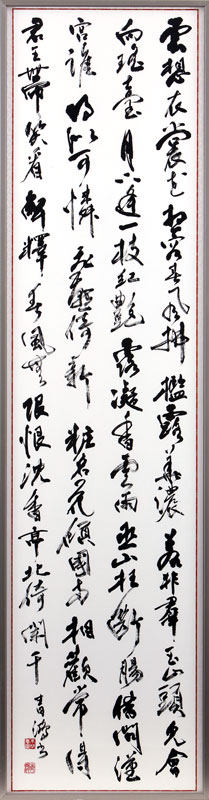 雲想衣裳花想容春風拂檻露華濃若非羣玉山頭見會
向瑤臺月下逢一枝紅艷露凝香雲雨巫山枉斷腸借問漢
宮誰得似可憐飛燕倚新粧名花傾國兩相歡常得
君王帶笑看解釋春風無限恨沈香亭北倚闌干